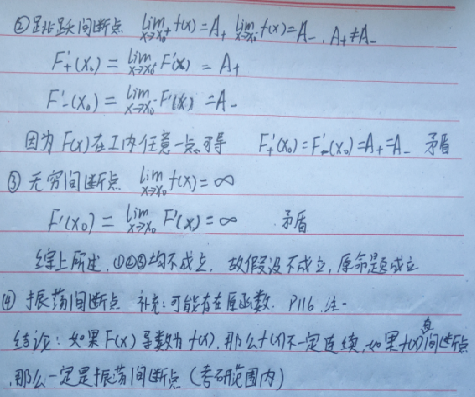 ②跳跃间断点 lim x→x₀⁺ f(x)=A₊ lim x→x₀⁻ f(x)=A₋, A₊≠A₋
F'₊(x₀)=lim x→x₀⁺ F'(x)=A₊
F'₋(x₀)=lim x→x₀⁻ F'(x)=A₋
因为F(x)在I内任意一点可导 F'₊(x₀)=F'₋(x₀)=A₊=A₋ 矛盾
③无穷间断点 lim x→x₀ f(x)=∞
F'(x₀)=lim x→x₀ F'(x)=∞ 矛盾
综上所述,①②③均不成立,故假设不成立,原命题成立
④振荡间断点 补充:可能存在原函数. P116.注.
结论:如果F(x)导数为f(x),那么f(x)不一定连续,如果f(x)有间断点
,那么一定是振荡间断点(考研范围内)